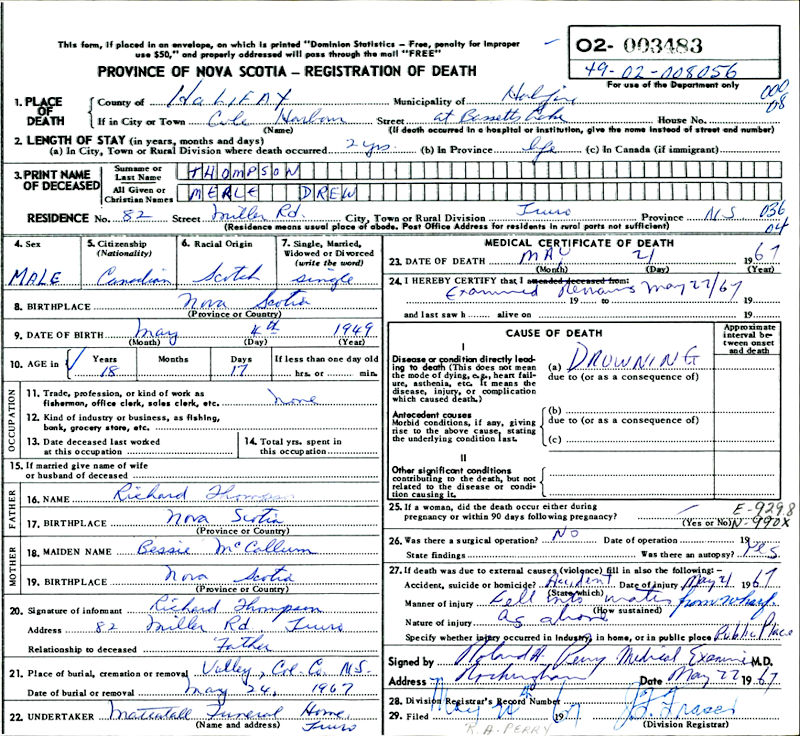 This form, if placed in an envelope, on which is printed "Dominion Statistics – Free, penalty for improper
use $50," and properly addressed will pass through the mail "FREE"
PROVINCE OF NOVA SCOTIA – REGISTRATION OF DEATH
02- 003483
49-02-008056
For use of the Department only
000
08
1. PLACE OF DEATH
County of HALIFAX Municipality of Halifax
If in City or Town Cole Harbour Street at Bissetts Lake House No.
(Name) (If death occurred in a hospital or institution, give the name instead of street and number)
2. LENGTH OF STAY (in years, months and days)
(a) In City, Town or Rural Division where death occurred 2 yrs. (b) In Province life (c) In Canada (if immigrant)
3. PRINT NAME OF DECEASED
Surname or Last Name THOMPSON
All Given or Christian Names MERLE DREW
RESIDENCE No. 82 Street Miller Rd. City, Town or Rural Division Truro Province N.S. 036
04
(Residence means usual place of abode. Post Office Address for residents in rural parts not sufficient)
4. Sex
MALE
5. Citizenship
(Nationality)
Canadian
6. Racial Origin
Scotch
7. Single, Married,
Widowed or Divorced
(write the word)
single
8. BIRTHPLACE Nova Scotia
(Province or Country)
9. DATE OF BIRTH May 4th 1949
(Month) (Day) (Year)
10. AGE in Years Months Days If less than one day old
18 17 hrs. or min.
OCCUPATION
11. Trade, profession, or kind of work as
fisherman, office clerk, sales clerk, etc. None
12. Kind of industry or business, as fishing,
bank, grocery store, etc.
13. Date deceased last worked
at this occupation
14. Total yrs. spent in
this occupation
15. If married give name of wife
or husband of deceased
FATHER
16. NAME Richard Thompson
17. BIRTHPLACE Nova Scotia
(Province or Country)
MOTHER
18. MAIDEN NAME Bessie McCallum
19. BIRTHPLACE Nova Scotia
(Province or Country)
20. Signature of informant Richard Thompson
Address 82 Miller Rd Truro
Relationship to deceased Father
21. Place of burial, cremation or removal Valley, Col. Co. N.S.
Date of burial or removal May 24, 1967
22. UNDERTAKER Mattatall Funeral Home,
(Name and address) Truro
MEDICAL CERTIFICATE OF DEATH
23. DATE OF DEATH MAY 21 1967
(Month) (Day) (Year)
24. I HEREBY CERTIFY that I attended deceased from:
Examined Remains May 22/67
19 to 19
and last saw h alive on 19
CAUSE OF DEATH
Approximate
interval be-
tween onset
and death
I
Disease or condition directly lead-
ing to death (This does not mean
the mode of dying, e.g., heart fail-
ure, asthenia, etc. It means the
disease, injury, or complication
which caused death.)
(a) DROWNING
due to (or as a consequence of)
Antecedent causes
Morbid conditions, if any, giving
rise to the above cause, stating
the underlying condition last.
(b)
due to (or as a consequence of)
(c)
II
Other significant conditions
contributing to the death, but not
related to the disease or condi-
tion causing it.
25. If a woman, did the death occur either during
pregnancy or within 90 days following pregnancy?
(Yes or No)
E-929.8
N-990X
26. Was there a surgical operation? NO Date of operation 19
State findings Was there an autopsy? Yes
27. If death was due to external causes (violence) fill in also the following:–
Accident, suicide or homicide? Accident Date of injury May 21 1967
(State which)
Manner of injury Fell into water from wharf.
(How sustained)
Nature of injury As above
Specify whether injury occurred in industry, in home, or in public place Public Place
Signed by Roland A. Perry Medical Examiner M.D.
Address Rockingham Date May 22 1967
28. Division Registrar's Record Number
29. Filed May 19 67
(Division Registrar)
R.A. PERRY